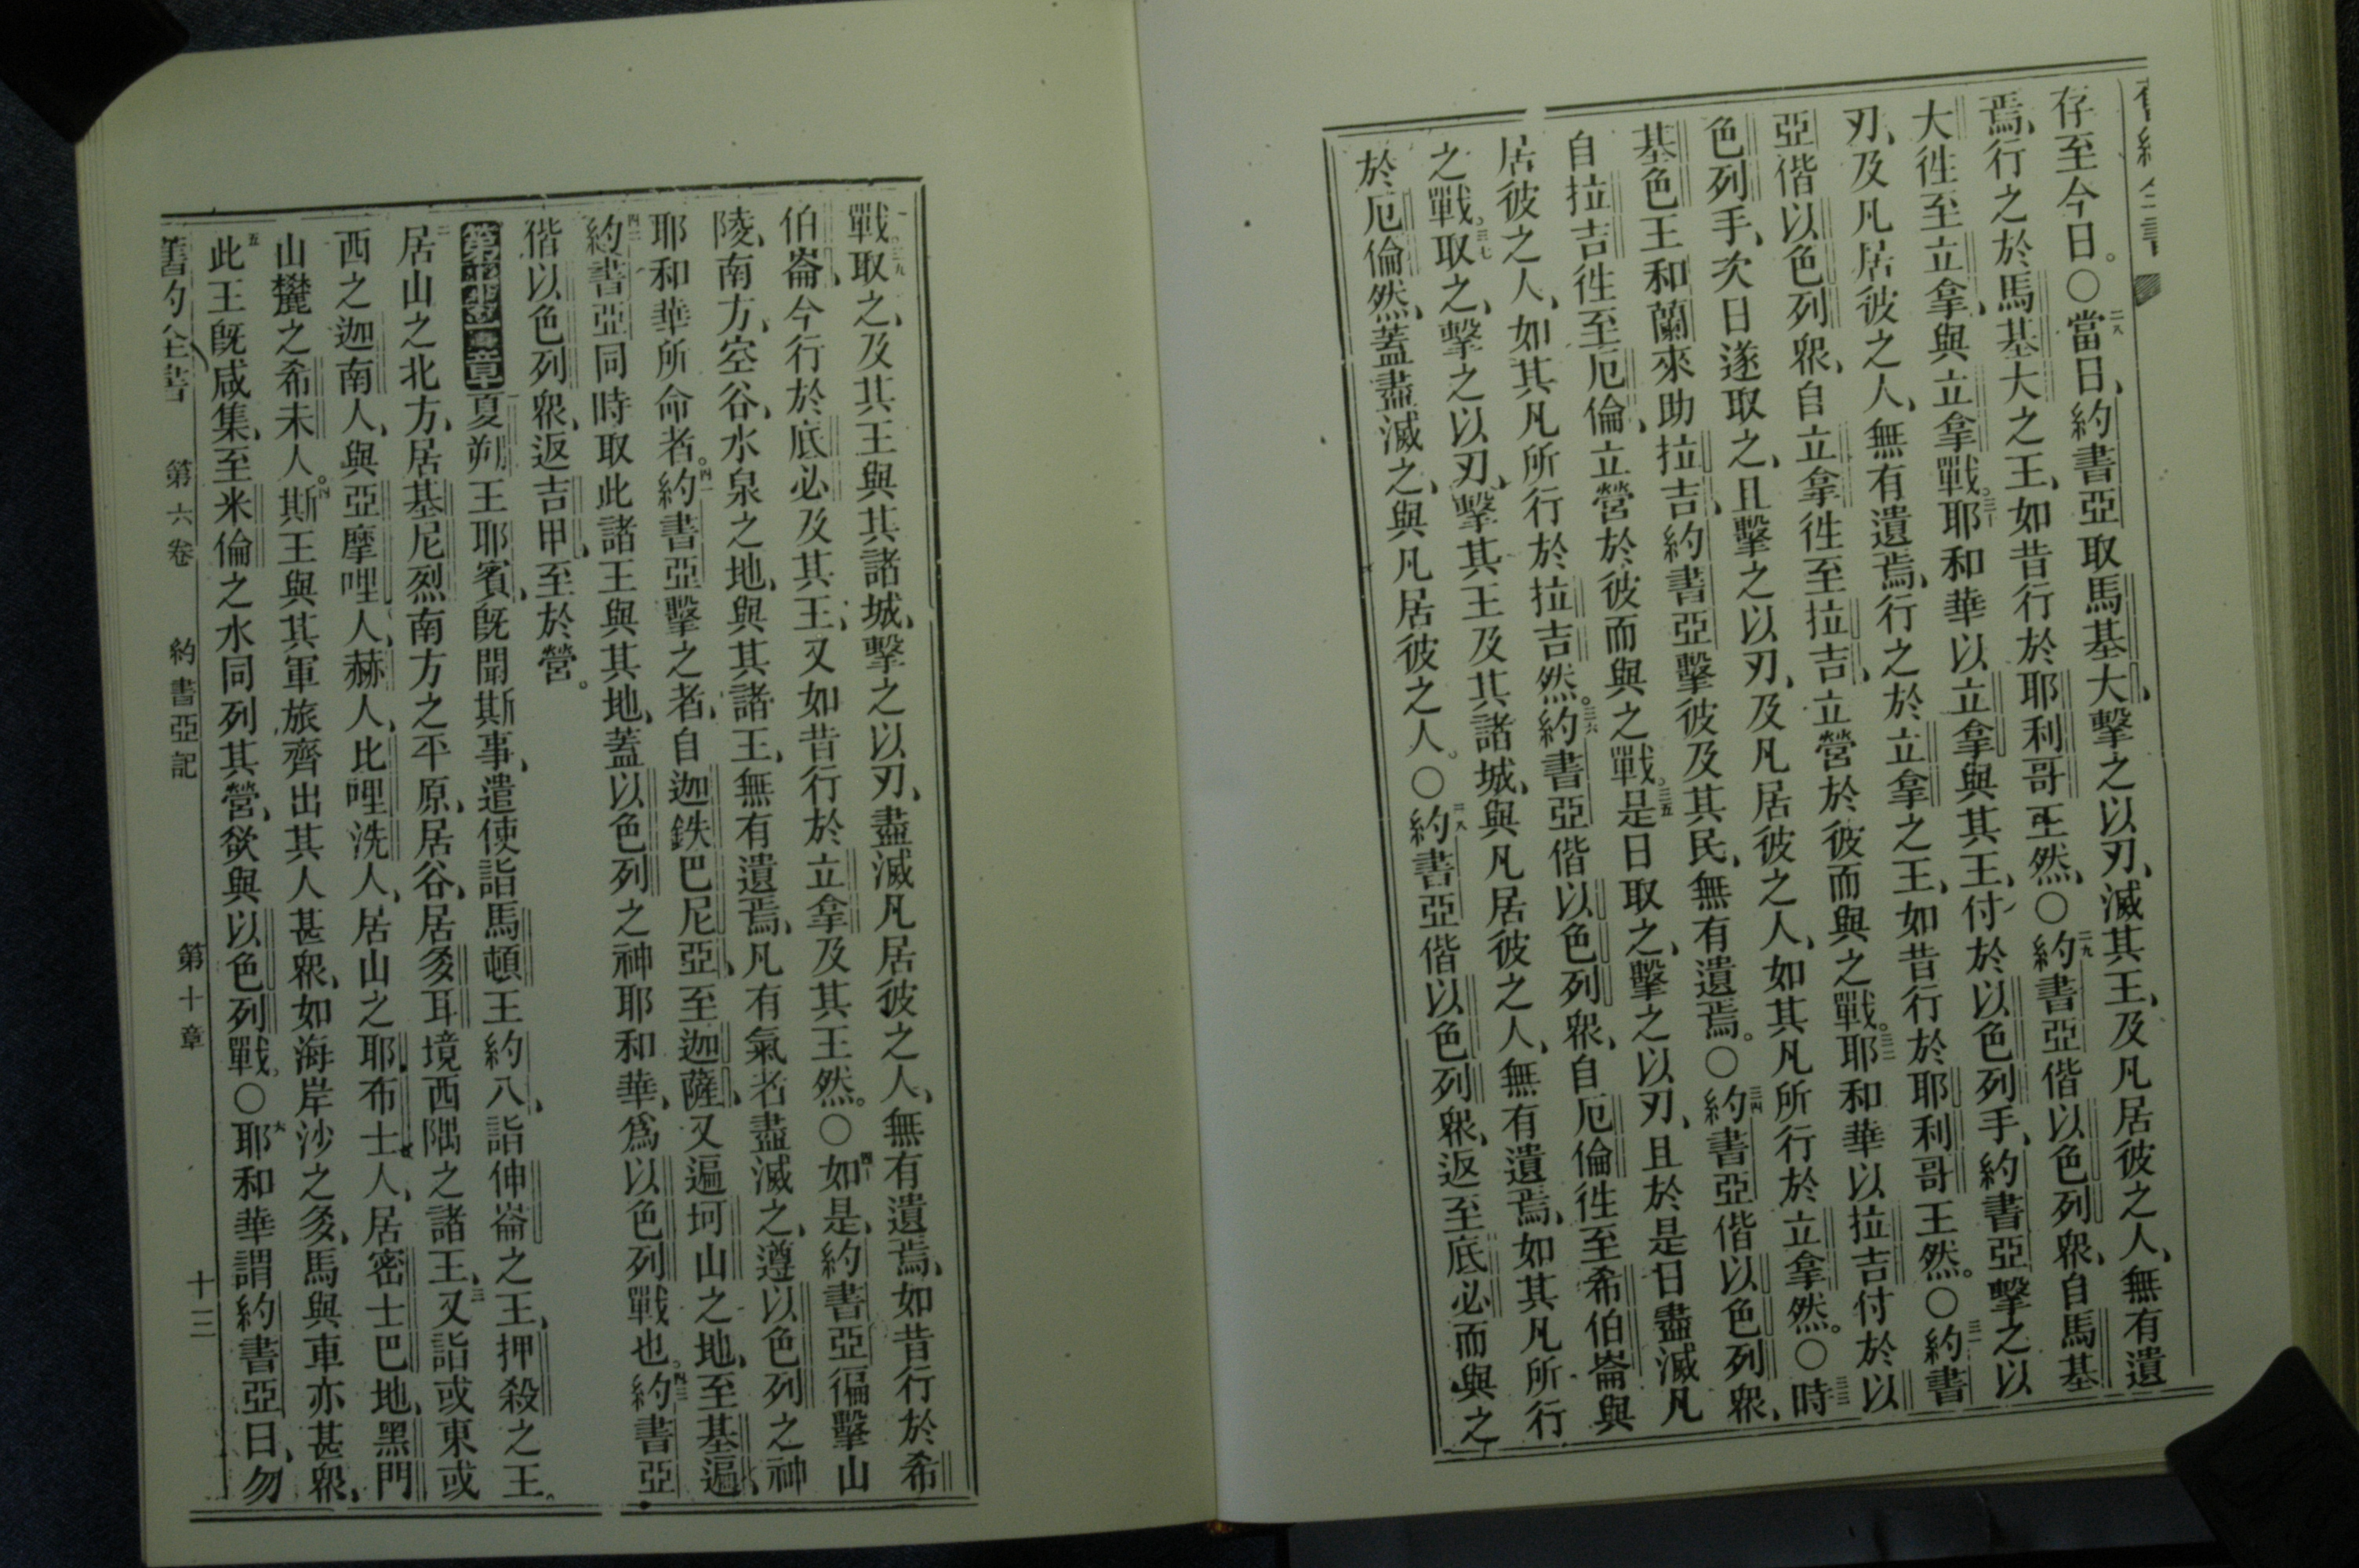 舊約全書
存至今日。○二八當日、約書亞取馬基大、擊之以刃、滅其王、及凡居彼之人、無有遺
焉、行之於馬基大之王、如昔行於耶利哥王然、○二九約書亞偕以色列衆、自馬基
大徃至立拿、與立拿戰。三十耶和華以立拿與其王、付於以色列手、約書亞擊之以
刃、及凡居彼之人、無有遺焉、行之於立拿之王、如昔行於耶利哥王然。○三一約書
亞偕以色列衆、自立拿徃至拉吉、立營於彼而與之戰。三二耶和華以拉吉付於以
色列手、次日遂取之、且擊之以刃、及凡居彼之人、如其凡所行於立拿然。○三三時
基色王和蘭來助拉吉、約書亞擊彼及其民、無有遺焉。○三四約書亞偕以色列衆、
自拉吉徃至厄倫、立營於彼而與之戰。三五是日取之、擊之以刃、且於是日盡滅凡
居彼之人、如其凡所行於拉吉然。三六約書亞偕以色列衆、自厄倫徃至希伯崙與
之戰。三七取之、擊之以刃、擊其王及其諸城、與凡居彼之人、無有遺焉、如其凡所行
於厄倫然、蓋盡滅之、與凡居彼之人。○三八約書亞偕以色列衆、返至底必而與之
戰。三九取之、及其王與其諸城、擊之以刃、盡滅凡居彼之人、無有遺焉、如昔行於希
伯崙、今行於底必及其王、又如昔行於立拿及其王然。○四十如是、約書亞徧擊山
陵、南方、空谷、水泉之地、與其諸王、無有遺焉、凡有氣者盡滅之、遵以色列之神
耶和華所命者。四一約書亞擊之者、自迦鉄巴尼亞、至迦薩、又遍坷山之地、至基遍、
四二約書亞同時取此諸王與其地、蓋以色列之神耶和華、爲以色列戰也。四三約書亞
偕以色列衆、返吉甲、至於營。
第十一章夏朔王耶賓、旣聞斯事、遣使詣馬頓王約八、詣伸崙之王、押殺之王。
二居山之北方、居基尼烈南方之平原、居谷、居多耳境西隅之諸王、三又詣或東或
西之迦南人、與亞摩哩人、赫人、比哩洗人、居山之耶布士人、居密士巴地、黑門
山麓之希未人。四斯王與其軍旅齊出其人甚衆、如海岸沙之多、馬與車亦甚衆、
五此王旣咸集、至米倫之水同列其營、欲與以色列戰。○六耶和華謂約書亞曰、勿
舊約全書 第六卷 約書亞記 第十章 十三